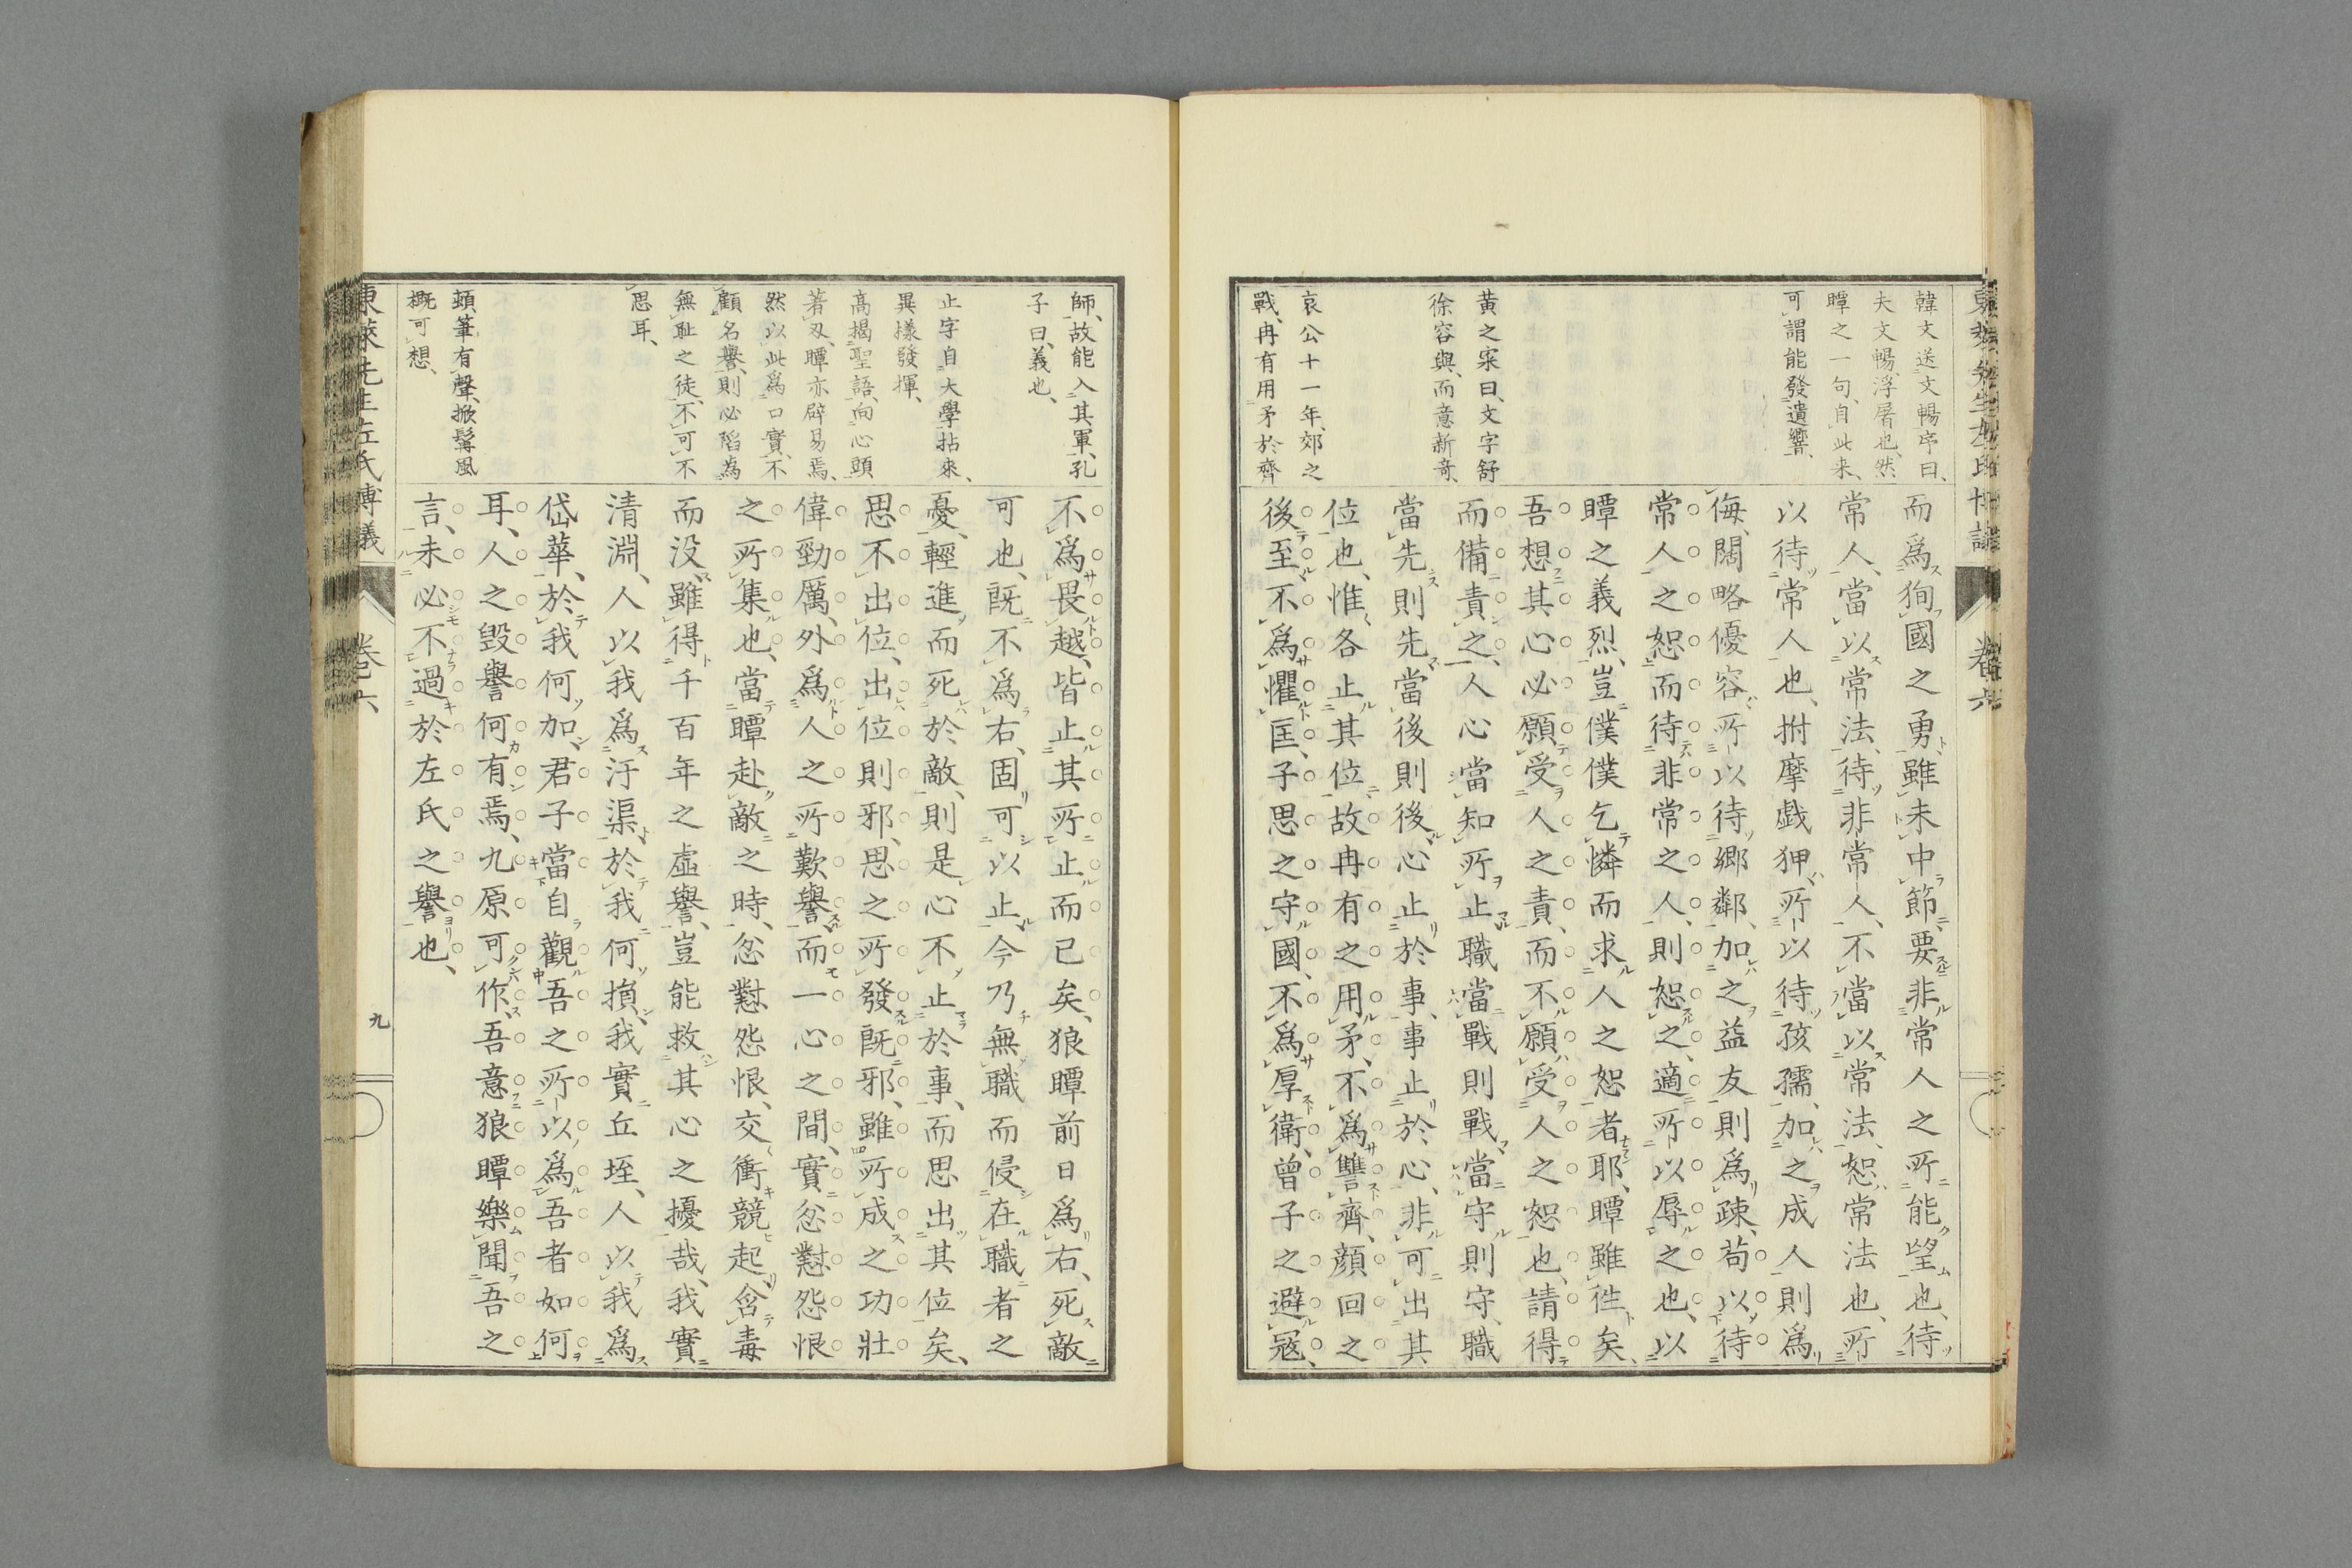 東萊先生左氏博議
卷六
韓文送文暢序曰、
夫文暢、浮屠也、然
瞫之一句、自此来、
可謂能發遺響、
黄之寀曰、文字舒
徐容與、而意新竒、
哀公十一年、郊之
戰、冉有用矛於齊
而爲狥國之勇、雖未中節、要非常人之所能望也、待
常人、當以常法、待非常人、不當以常法、恕常法也、所
以待常人也、拊摩戯狎、所以待孩孺、加之成人則爲
侮、闊略優容、所以待郷鄰、加之益友則爲疎、苟以待
常人之恕而待非常之人、則恕之、適所以辱之也、以
瞫之義烈、豈僕僕乞憐而求人之恕者耶、瞫雖徃矣、
吾想其心必願受人之責、而不願受人之恕也、請得
而備責之、人心當知所止、職當戰則戰、當守則守、職
當先則先、當後則後、心止於事、事止於心、非可出其
位也、惟各止其位、故冉有之用矛、不爲讐齊、顔回之
後至、不爲懼匡、子思之守國、不爲厚衛、曾子之避冦、
師、故能入其軍、孔
子曰、義也、
止字自大學拈來、
異樣發揮、
高揭聖語、向心頭
著刄、瞫亦辟易焉、
然以此爲口實、不
顧名譽、則必陷爲
無耻之徒、不可不
思耳、
頬筆有聲、掀髯風
概可想、
不爲畏越、皆止其所止而已矣、狼瞫前日爲右、死敵
可也、既不爲右、固可以止、今乃無職而侵在職者之
憂、輕進而死於敵、則是心不止於事、而思出其位矣、
思不出位、出位則邪、思之所發既邪、雖所成之功壯
偉勁厲、外爲人之所歎譽、而一心之間、實忿懟怨恨
之所集也、當瞫赴敵之時、忿懟怨恨、交衝競起含毒
而没、雖得千百年之虚譽、豈能救其心之擾哉、我實
清淵、人以我爲汙渠、於我何損、我實丘垤、人以我爲
岱華、於我何加、君子當自觀吾之所以爲吾者如何
耳、人之毀譽何有焉、九原可作、吾意狼瞫樂聞吾之
言、未必不過於左氏之譽也、
東萊先生左氏博議
卷六
九